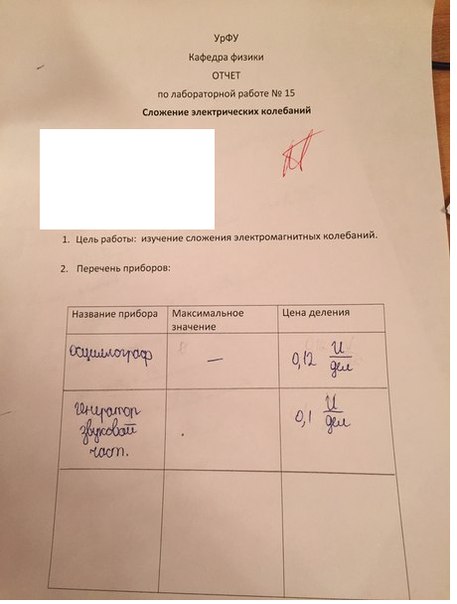 УрФУ
Кафедра физики
ОТЧЕТ
по лабораторной работе № 15
Сложение электрических колебаний
1. Цель работы: изучение сложения электромагнитных колебаний.
2. Перечень приборов:
Название прибора Максимальное значение Цена деления
осциллограф — 0,12 И/дел
генератор звуковой част. 0,1 И/дел